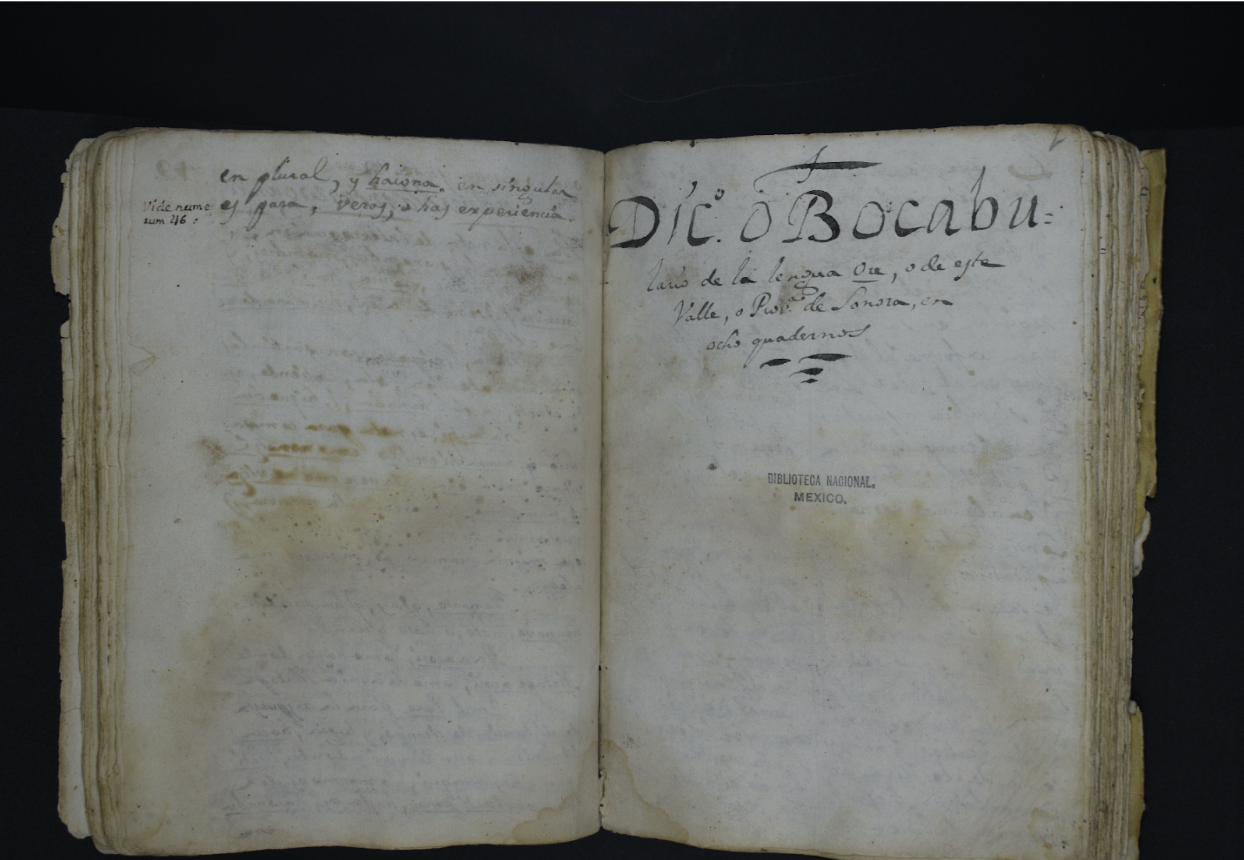 en plural, y haiona. en singular
es para, veros, o has experiencia.
Vide nume
rum 46 :
Dic.º ó Bocabu=
lario de la lengua Ore, o de este
Valle, o Prov.ª de Sonora, en
ocho quadernos
BIBLIOTECA NACIONAL.
MEXICO.